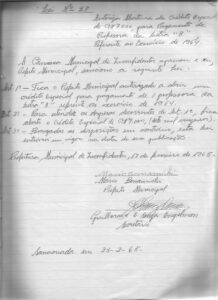 Lei Nº 38
Autoriza Abertura de Crédito Especial
de Cr$ para Pagamento de
Professora da Letra "B"
Referente ao Exercício de 1964
A Câmara Municipal de Inconfidentes aprovou e eu,
Prefeito Municipal, sanciono a seguinte Lei
Art 1º - Fica o Prefeito Municipal autorizado a abrir um
crédito Especial para pagamento a professora da
letra "B" referente ao exercício de 1964.
Art 2º - Para atender as despesas decorrentes do Art. 1º, fica
aberto o Crédito Especial de
Art 3º - Revogadas as disposições em contrário, esta lei
entrará em vigor na data de sua publicação.
Prefeitura Municipal de Inconfidentes, de fevereiro de 1965.
Mário Bonamichi
Prefeito Municipal
Secretário
Sancionada em 25-2-65.